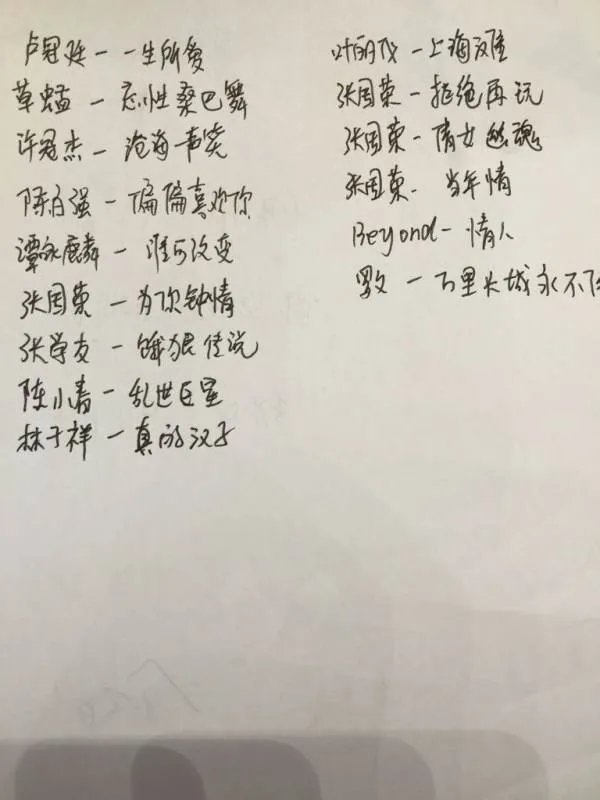 卢冠廷——一生所爱
草蜢—忘情桑巴舞
许冠杰—沧海一声笑
陈百强—偏偏喜欢你
谭咏麟—谁可改变
张国荣—为你钟情
张学友—饿狼传说
陈小春—乱世巨星
林子祥—真的汉子
叶丽仪—上海滩
张国荣—拒绝再玩
张国荣—倩女幽魂
张国荣-当年情
Beyond-情人
—万里长城永不